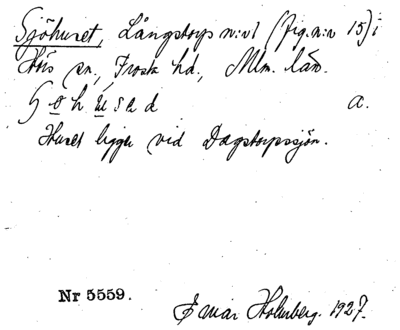 Sjöhuset, Långstorps n:o 1 (jrg. n:r 15) i
Hörs sn., Frosta hd., Mlm. län.
a.
Huset ligger vid Dagstorpssjön.
Nr 5559.
Ingvar Holmberg. 1927.